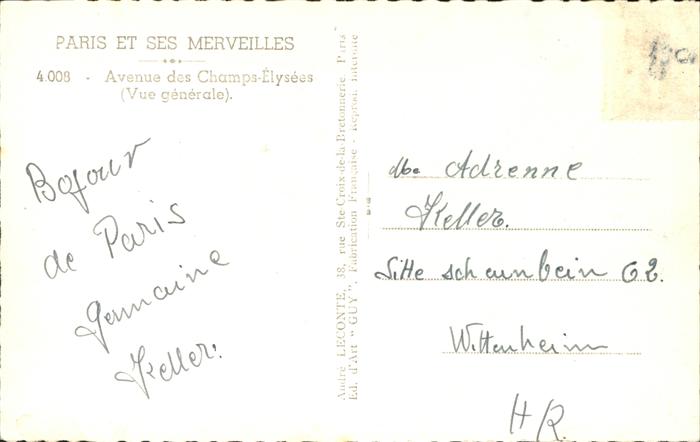 PARIS ET SES MERVEILLES
4.008 - Avenue des Champs-Élysées
(Vue générale).
Bojour
de Paris
Germaine
Keller.
André LECONTE, 38, rue Ste-Croix-de-la-Bretonnerie, Paris
Ed. d'Art "GUY", Fabrication Française - Reprod. Interdite
Adrenne
Keller.
Sitte schounbein 62.
Wittenheim
HR